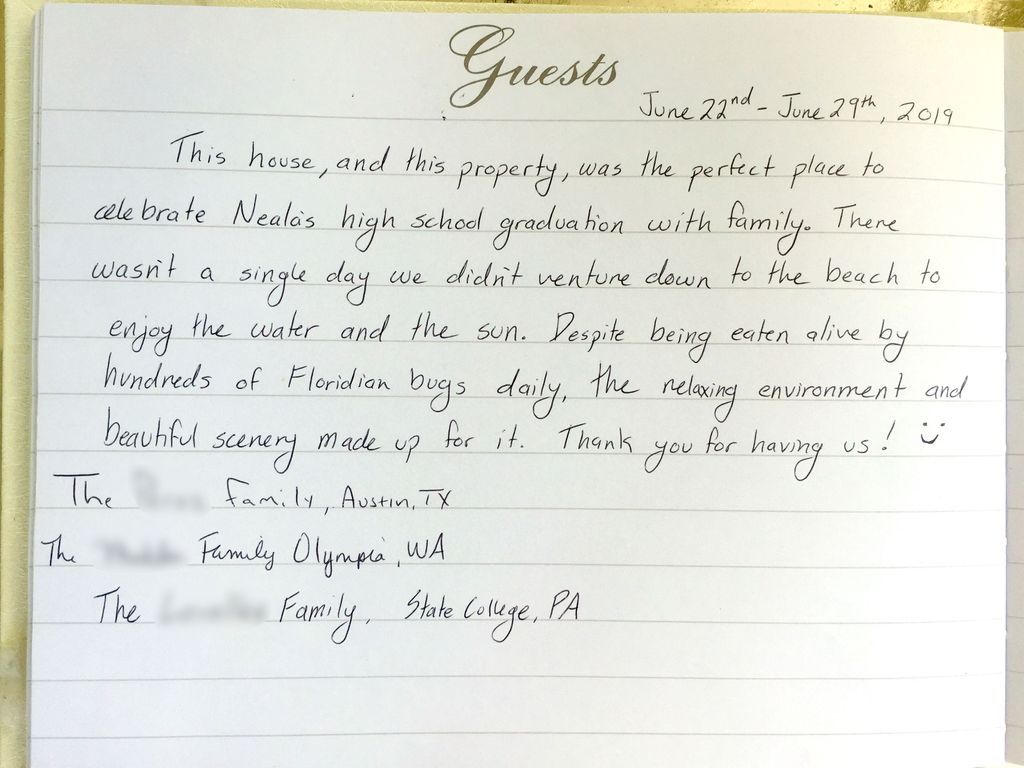 Guests
June 22nd - June 29th, 2019
This house, and this property, was the perfect place to
celebrate Neala's high school graduation with family. There
wasn't a single day we didn't venture down to the beach to
enjoy the water and the sun. Despite being eaten alive by
hundreds of Floridian bugs daily, the relaxing environment and
beautiful scenery made up for it. Thank you for having us! :)
The Family, Austin, TX
The Family Olympia, WA
The Family, State College, PA